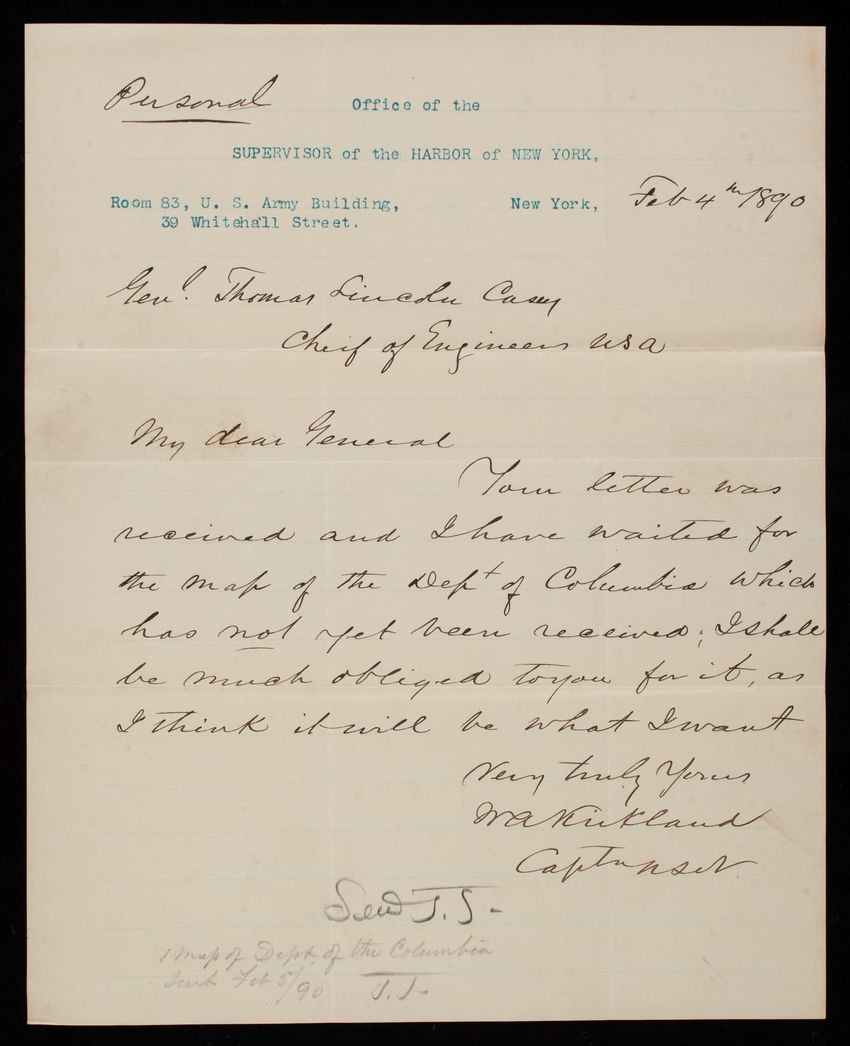 Personal
Office of the
SUPERVISOR of the HARBOR of NEW YORK,
Room 83, U. S. Army Building,
39 Whitehall Street.
New York, Feb 4th 1890
Genl. Thomas Lincoln Casey
Cheif of Engineers USA
My dear General
Your letter was
received and I have waited for
the map of the Dept of Columbia which
has not yet been received; I shall
be much obliged to you for it, as
I think it will be what I want
Very truly Yours
WA Kirkland
Captn USN.
Send T.J-
1 Map of Dept. of the Columbia
Sent Feb 5/90 T.J-